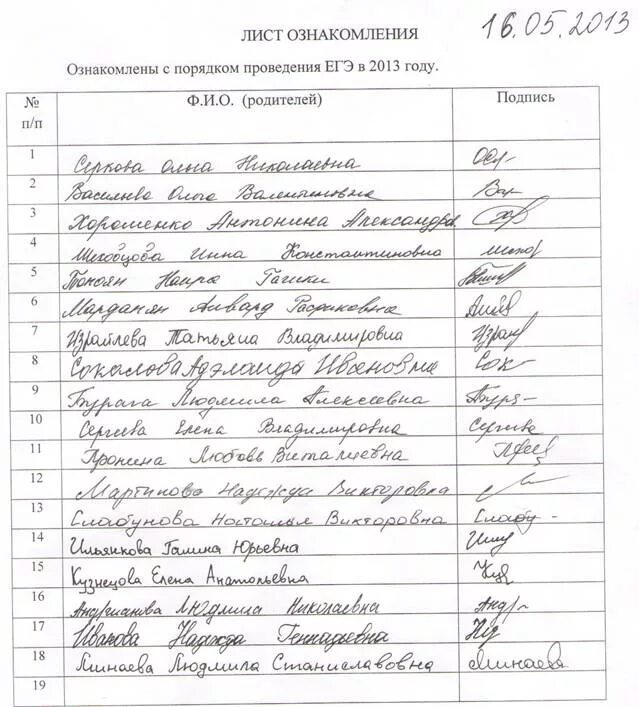 16.05.2013
ЛИСТ ОЗНАКОМЛЕНИЯ
Ознакомлены с порядком проведения ЕГЭ в 2013 году.
№ п/п Ф.И.О. (родителей) Подпись
1 Серкова Ольга Николаевна
2 Васильева Ольга Валентиновна Вас-
3 Хороменко Антонина Александров.
4 Инна Константиновна
5 Наира Гагики
6 Марданян Алвард Рафиковна
7 Израйлева Татьяна Владимировна Изран
8 Соколова Аделаида Ивановна Сок
9 Бурага Людмила Алексеевна Бург-
10 Сергиева Елена Владимировна Сергиева
11 Пронина Любовь Виталиевна
12 Мартинова Надежда Викторовна
13 Слабунова Наталья Викторовна Слабу-
14 Ильянкова Галина Юрьевна
15 Кузнецова Елена Анатольевна Куз
16 Андрианова Людмила Николаевна Андр-
17 Иванова Надежда Геннадиевна
18 Минаева Людмила Станиславовна Минаева
19